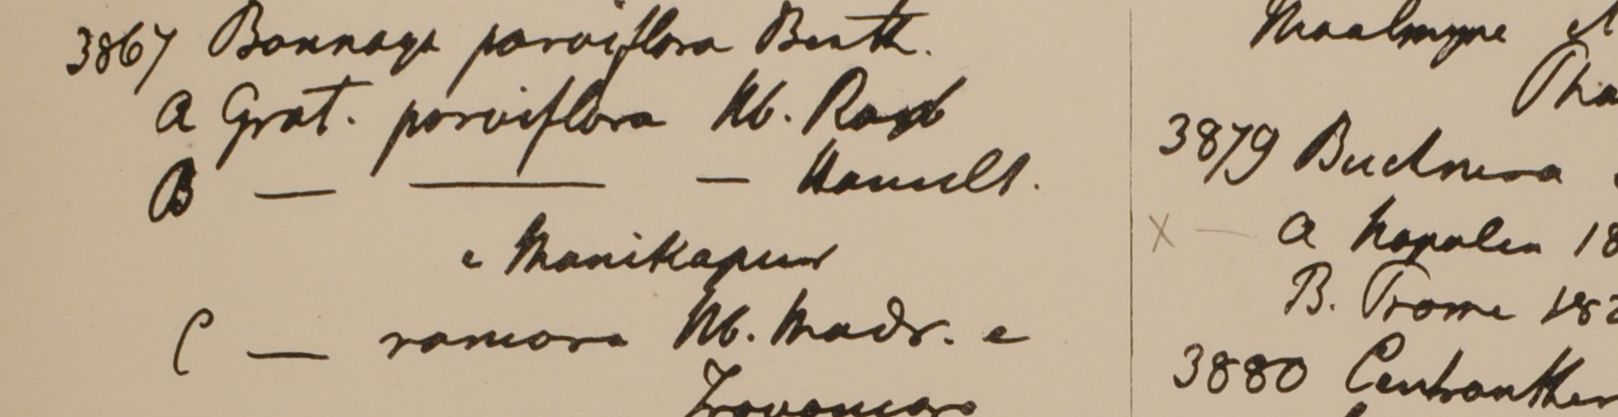 3867 Bonnaya parviflora Benth.
A Grat. parviflora Hb. Roxb
B — — — Hamilt.
e Manikapur
C — ramosa Hb. Madr. e
Travancore
Maulmyne
3879 Buchnera
X — A Napalia 18
B. Prome 182
3880 Centranther